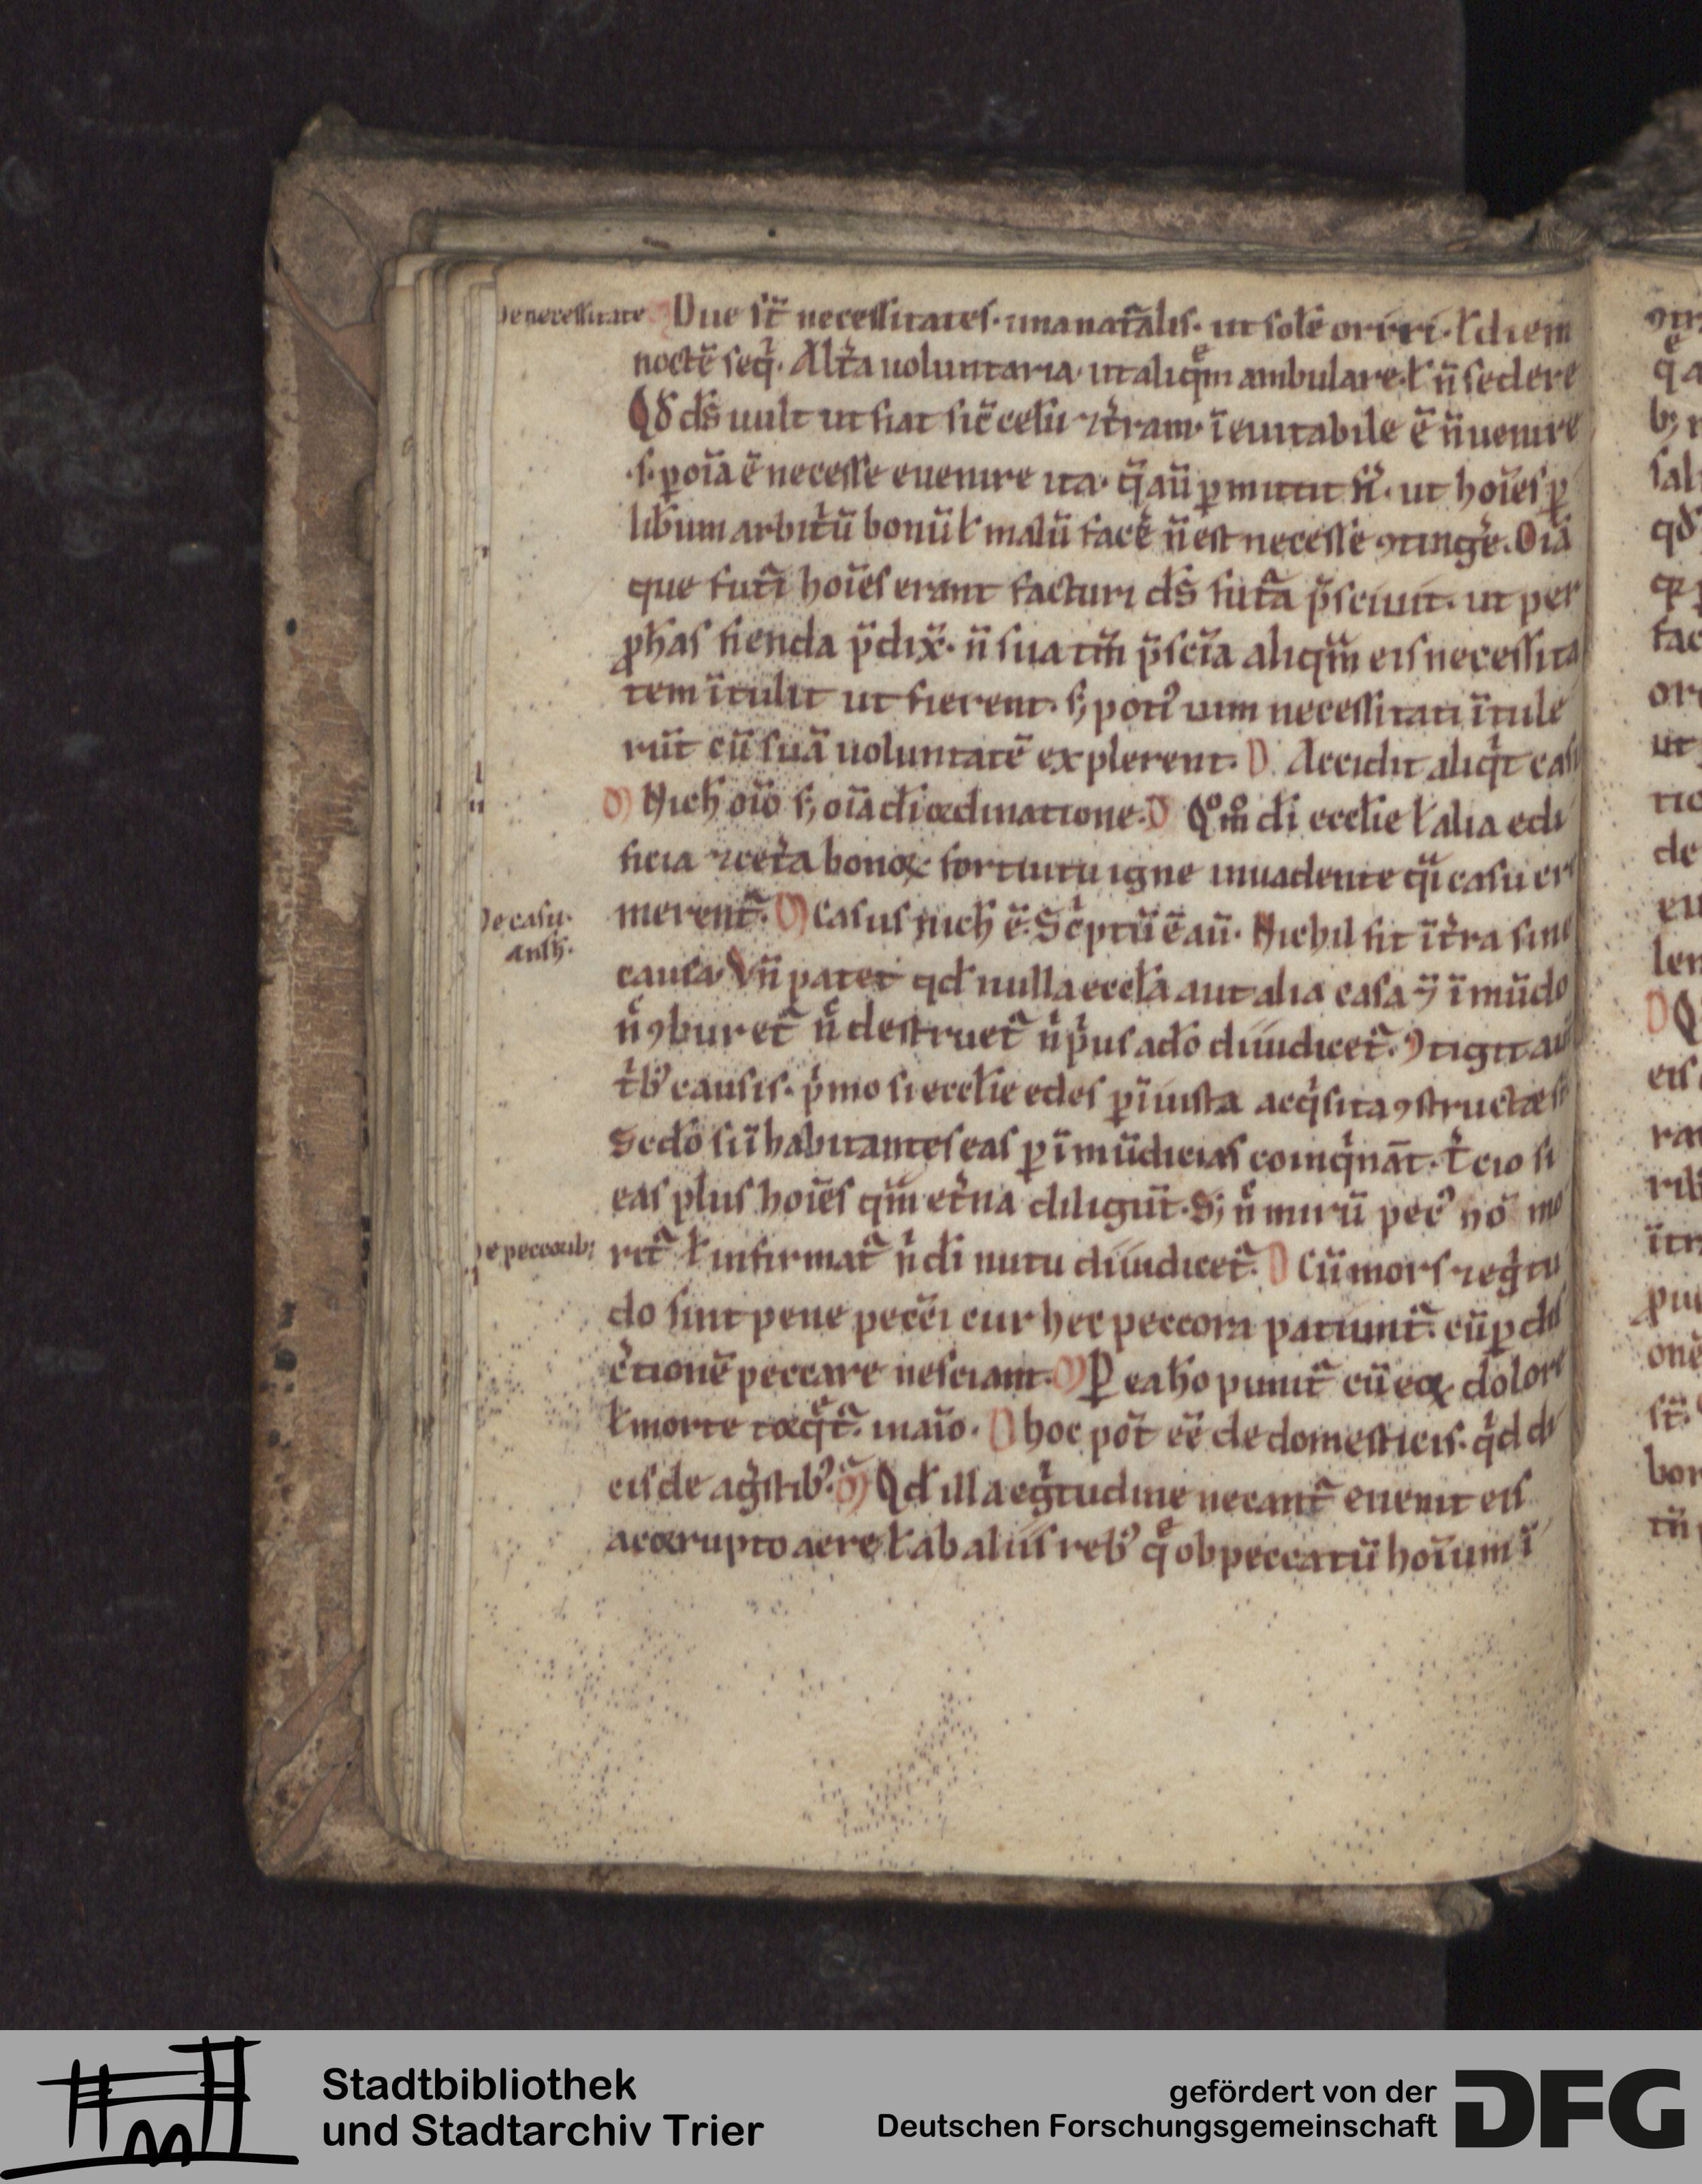 De necessitate Due st̄ necessitates· una nat᷑alis· ut solē oriri· ł diem
noctē seq̇· Alt̄a uoluntaria· ut aliq̄m ambulare· ł n̄ sedere
Qd̄ ds̄ uult ut fiat sic̄ celū ⁊ t̄ram· īeuitabile ē n̄ uenire
·s· ꝑ oīa ē necesse euenire ita· q̄ aū ꝑmittit fi᷑· ut hoīes ꝑ
lib̄um arbit̄ū bonū ł malū facē n̄ est necesse ꝯtingē· Oīa
que futi᷑ hoīes erant facturi ds̄ futa᷑ p̄sciuit· ut per
ꝓph̄as fienda p̄dix̄· n̄ sua tm̄ p̄scīa aliq̄m eis necessita
tem ītulit ut fierent· s; poti᷒ uim necessitati ītule
rūt cū suā uoluntatē explerent· D Accidit aliqͥt casu
M Nich̄ oīo s; oīa di᷑ ordinatione· D Qͦmͦ di᷑ eccłie ł alia edi
ficia ⁊ cet̄a bonoꝝ fortuitu igne inuadente q̄i casu cr
De casu· merent᷑· M Casus nich̄ ē· Sc̄ptū ē aū· Nichil fit ī t̄ra sine
anth̄·
causa· Vn̄ patet qd̄ nulla eccła aut alia casa ī mūdo
n̄ ꝯburet᷑ n̄ destruet᷑ n̄ pͥus a do᷑ diiudicet᷑· ꝯtigit aū
tͥb᷒ causis· pͥmo si eccłie edes ꝑ īiusta acqͥsita ꝯstructe sī
Scd̄o si īhabitantes eas ꝑ īmūdicias coinqͥnāt· t̄cio si
eas plus hoīes qm̄ et̄na diligūt· S; n̄ mirū pec᷒ nō mo
De peccorib; rit᷑ ł infirmat᷑ nͥ di᷑ nutu diiudicet᷑· D Cū mors ⁊ egͥtu
do sint pene pecc̄i cur hec peccora patiunt᷑· cū ꝑ dis
c̄tionē peccare nesciant· M Ꝑ ea h̄o punit᷑ cū eoꝝ dolore
ł morte torqͤt᷑· in aīo· D hoc pōt eē de domesticis· qͥd di
cis de agͥstib᷒· M Qd̄ illa egͥtudine necant᷑ euenit eis
a corrupto aere ł ab aliis reb᷒ qͤ ob peccatū hoīum ī
Stadtbibliothek
und Stadtarchiv Trier
gefördert von der
Deutschen Forschungsgemeinschaft
DFG